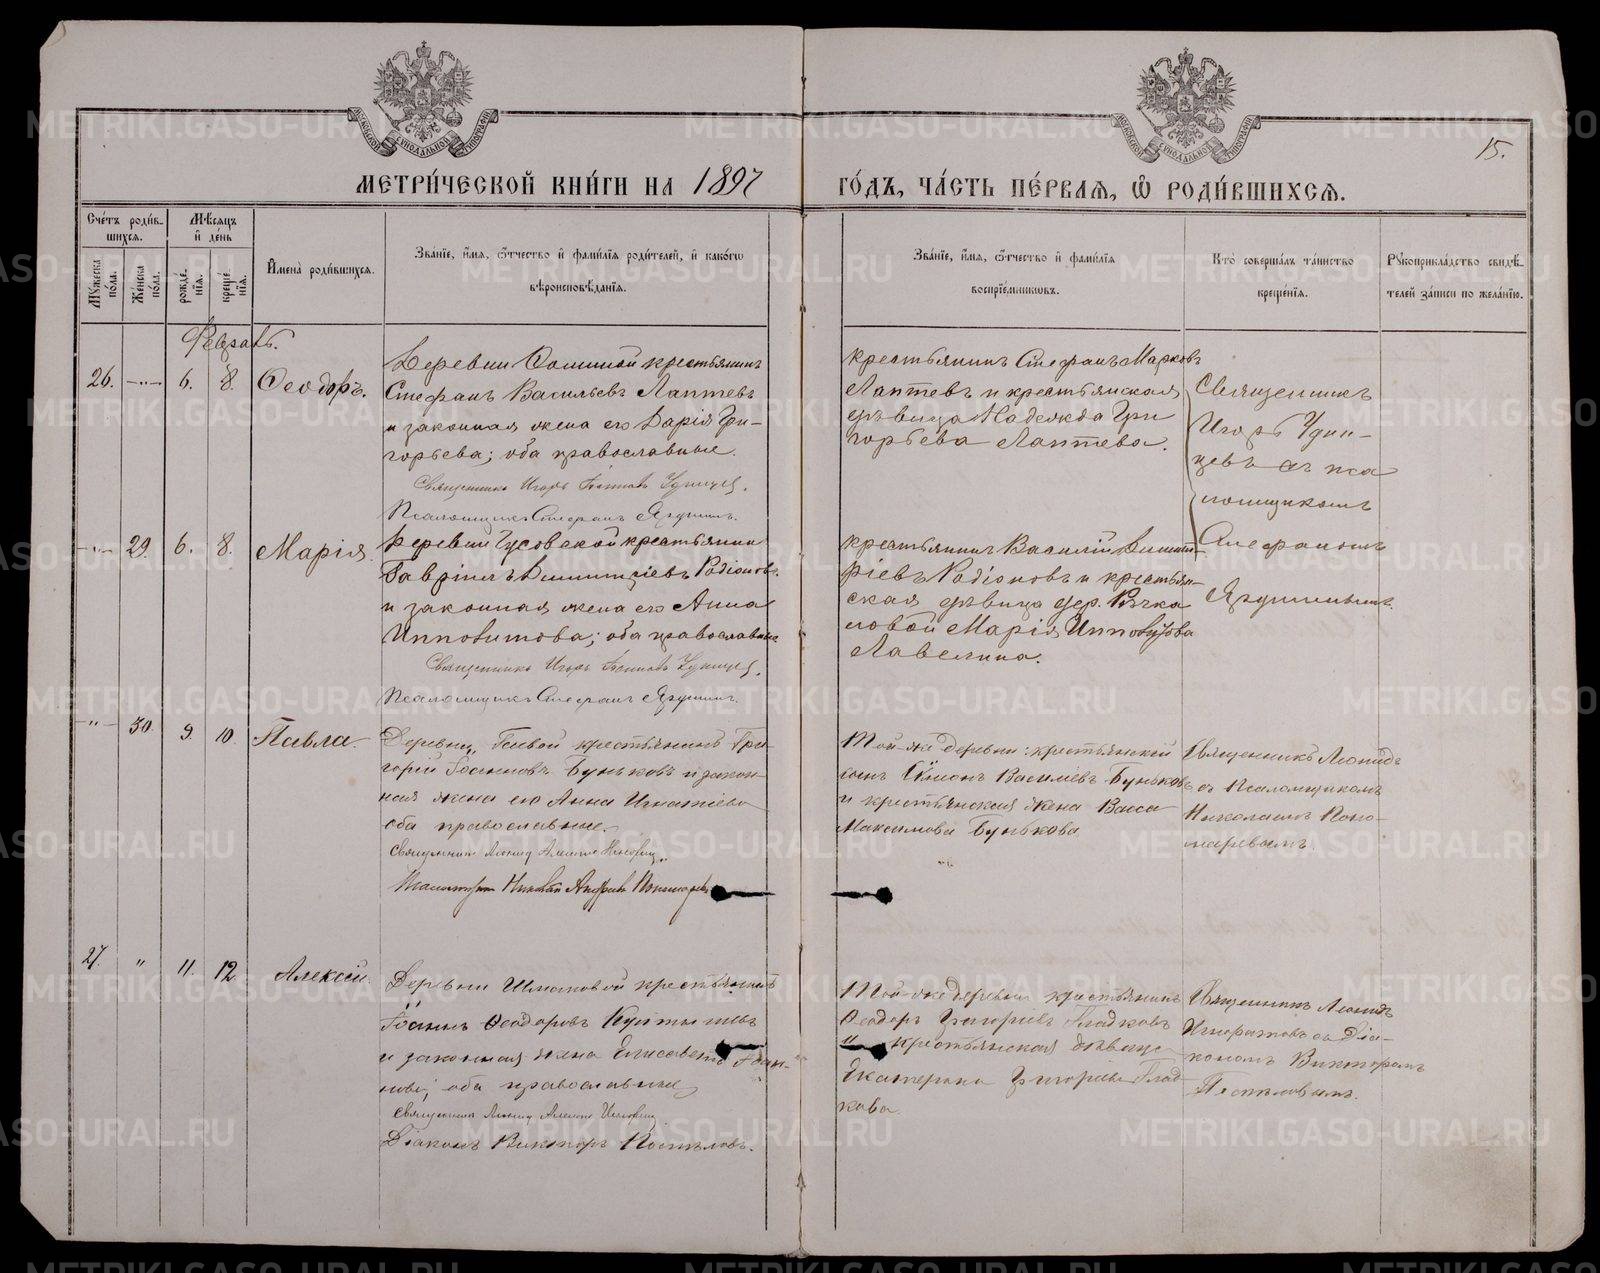 МОСКОВСКОЙ СѴНОДАЛЬНОЙ ТИПОГРАФІИ
МОСКОВСКОЙ СѴНОДАЛЬНОЙ ТИПОГРАФІИ
15.
МЕТРИ́ЧЕСКОЙ КНИ́ГИ НА 1897
ГО́ДЪ, ЧА́СТЬ ПЕ́РВАЯ, Ѽ РОДИ́ВШИХСЯ.
Сче́тъ роди́в-
шихся.
Мꙋжеска по́ла.
Же́нска по́ла.
Мѣ́сяцъ и де́нь
рожде́нія.
креще́нія.
И҆мена̀ роди́вшихся.
Зва́ніе, и҆́мя, ѻ҆́тчество и҆ фами́лія роди́телей, и҆ како́гѡ
вѣроисповѣ́данія.
Зва́ніе, и҆́мя, ѻ҆́тчество и҆ фами́лія
воспріе́мниковъ.
Кто̀ соверша́лъ та́инство
креще́нія.
Рꙋкоприкла́дство свидѣ́-
телей за́писи по жела́нію.
Февраль.
26. —"— 6. 8. Ѳеодоръ.
Деревни крестьянинъ
Стефанъ Васильевъ Лаптевъ
и законная жена его Дарія Гри-
горьева; оба православные.
Священникъ Игорь Удинцев.
Псаломщикъ Стефанъ Ярушинъ.
крестьянинъ Стефанъ Марковъ
Лаптевъ и крестьянская
дѣвица Надежда Гри
горьева Лаптева.
Священникъ
Игорь Удин-
цевъ съ пса
ломщикомъ
Стефаномъ
Ярушинымъ.
—"— 29. 6. 8. Марія.
Деревни Гусовской крестьянин
Гавріилъ Димитріевъ Родіоновъ
и законная жена его Анна
Ипполитова; оба православные
Священникъ Игорь Удинцев.
Псаломщикъ Стефанъ Ярушинъ.
крестьянинъ Василій Димит-
ріевъ Родіоновъ и крестьян-
ская дѣвица дер. Рычка
ловой Марія Ипполитова
Лавелина.
—"— 30. 9. 10. Павла.
Деревни Гаевой крестьянинъ Гри-
горій Іоанновъ Буньковъ и закон-
ная жена его Анна Игнатіева
оба православные.
Священник Леонид Игнорицкий.
Псаломщик Николай Андреев Пономарев
Той-же деревни: крестьянской
сынъ Сѵмеонъ Василіевъ Буньковъ
и крестьянская жена Васса
Максимова Бунькова
Священникъ Леонидъ
съ Псаломщикомъ
Николаемъ Поно-
маревымъ.
27. " 11. 12. Алексій.
Деревни Шмаковой крестьянинъ
Іоаннъ Ѳеодоровъ
и законная жена Елисавета Іоан-
нова; оба православные
Священникъ Леонид
Діаконъ Викторъ Поспѣловъ.
Той-же деревни крестьянинъ
Ѳеодоръ Григоріевъ Гладковъ
и крестьянская дѣвица
Екатерина Григорьева Глад-
кова
Священникъ Леонидъ
съ Діа-
кономъ Викторомъ
Поспѣловымъ.
METRIKI.GASO-URAL.RU